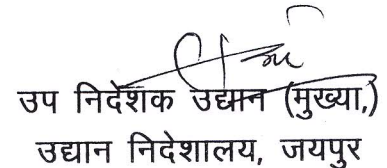 उप निदेशक उद्यान (मुख्या,)
उद्यान निदेशालय, जयपुर